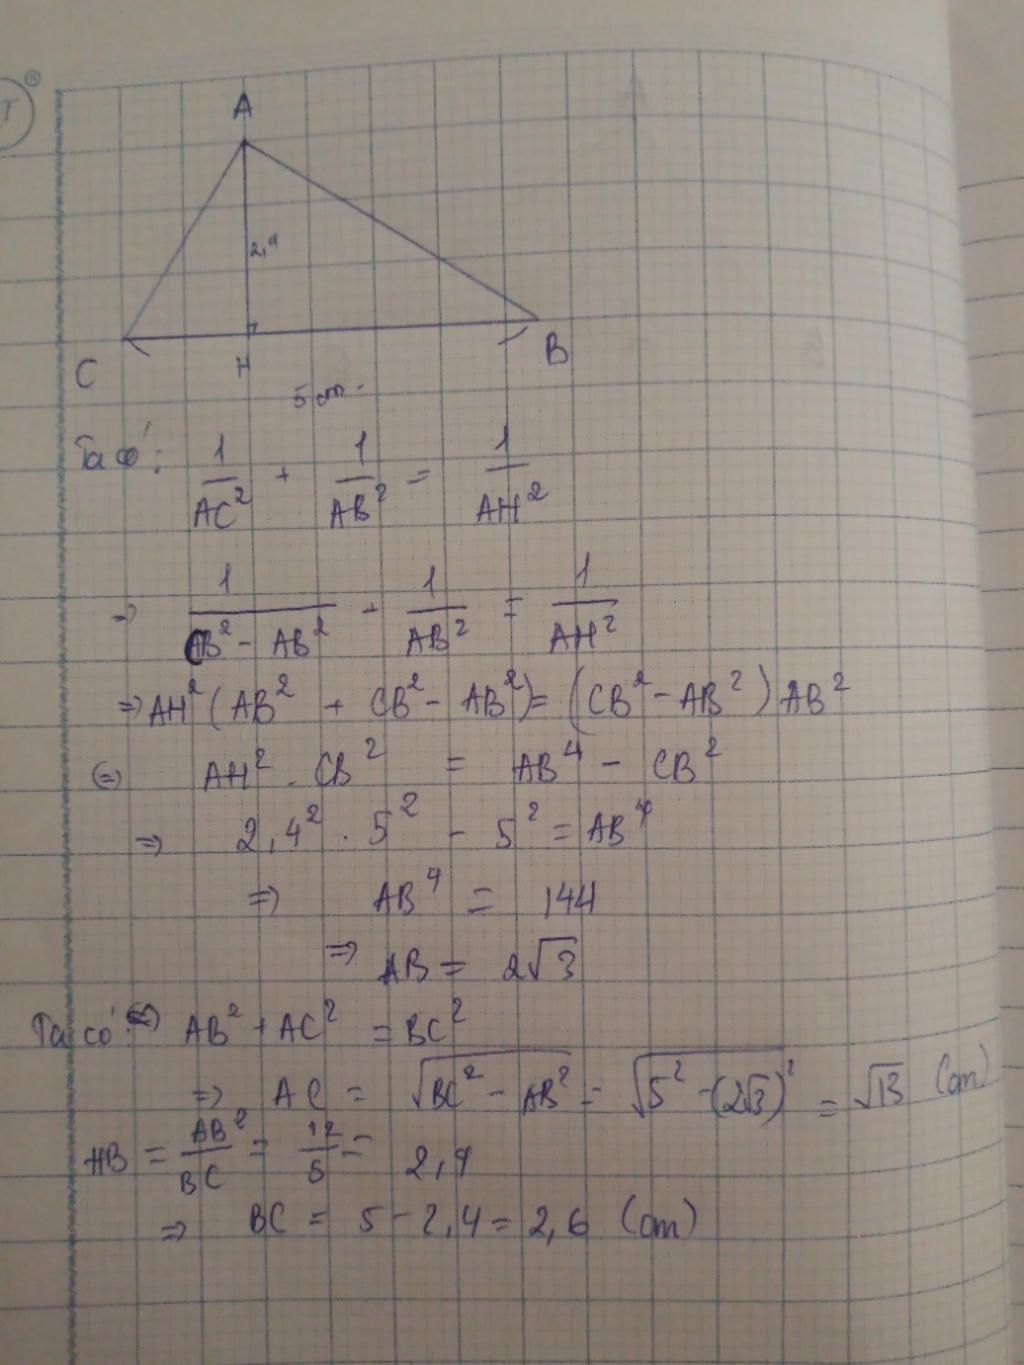 A
2,4
C
H
B
5 cm
Ta có: 1/AC² + 1/AB² = 1/AH²
=> 1/(CB² - AB²) + 1/AB² = 1/AH²
=> AH² (AB² + CB² - AB²) = (CB² - AB²) AB²
(=) AH² . CB² = AB⁴ - CB²
=> 2,4² . 5² - 5² = AB⁴
=> AB⁴ = 144
=> AB = 2√3
Ta có: AB² + AC² = BC²
=> AC = √(BC² - AB²) = √(5² - (2√3)²) = √13 (cm)
HB = AB²/BC = 12/5 = 2,4
=> BC = 5 - 2,4 = 2,6 (cm)